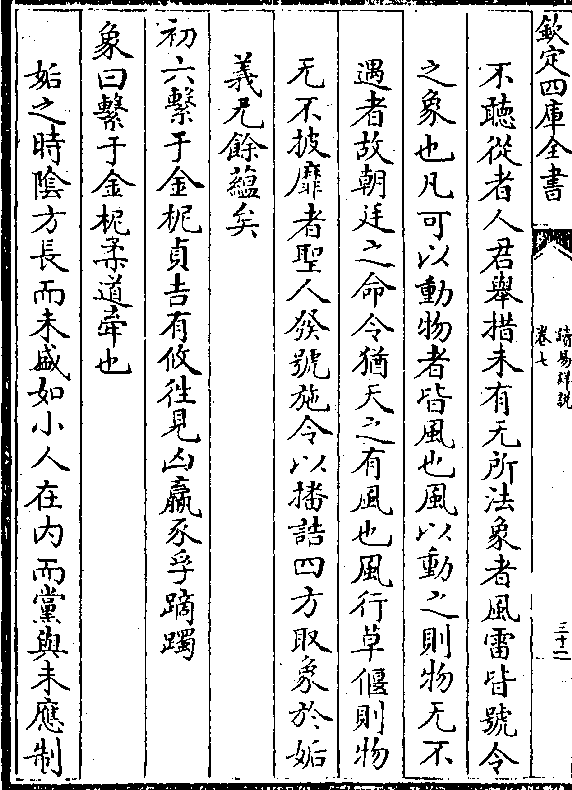 欽定四庫全書
讀易詳說
卷七
三十二
不聽從者人君舉措未有无所法象者風雷皆號令
之象也凡可以動物者皆風也風以動之則物无不
遇者故朝廷之命令猶天之有風也風行草偃則物
无不披靡者聖人發號施令以播誥四方取象於姤
義无餘蘊矣
初六繫于金柅貞吉有攸往見凶羸豕孚蹢躅
象曰繫于金柅柔道牽也
姤之時陰方長而未盛如小人在内而黨與未應制